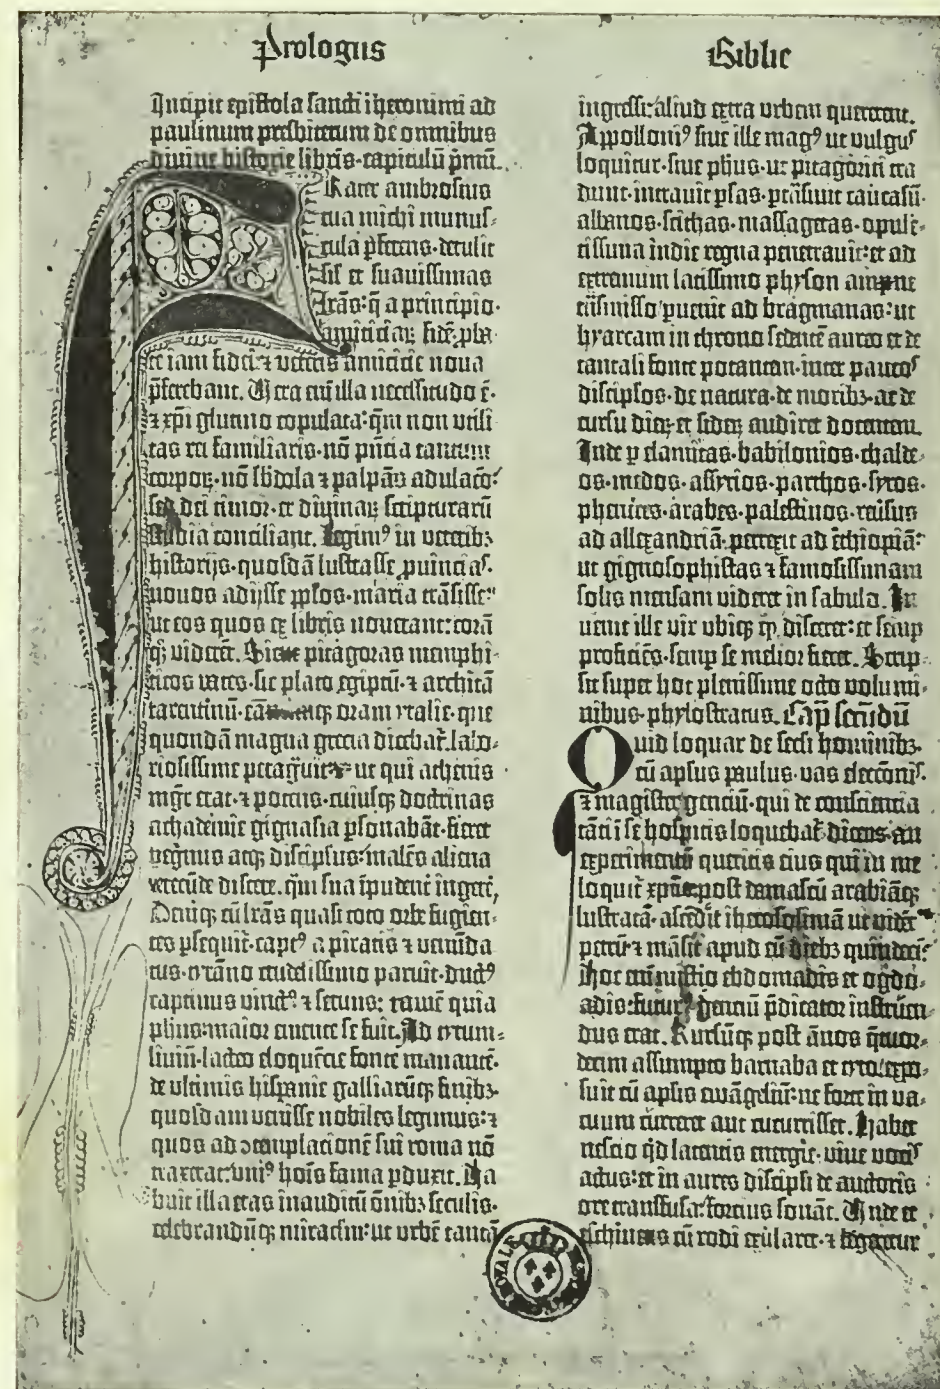 Prologus
Incipit epistola sancti iheronimi ad
paulinum presbiterum de omnibus
diuine historie libris. capitulū pmū.
Frater ambrosius
tua michi munus-
cula pferens. detulit
sīl et suauissimas
lrās: q̄ a principio
amiciciaꝝ fidē pba-
te iam fidei ⁊ veteris amicicie noua
pferebant. Uera eni illa necessitudo ē.
⁊ xpi glutino copulata: qm̄ non utili-
tas rei familiaris. nō pn̄cia tantum
corpoꝝ. nō sbdola ⁊ palpās adulaco:
sed dei timor. et diuinaꝝ scripturarū
studia conciliant. Legimꝰ in veteribꝫ
historijs. quosdā lustrasse puincias.
nouos adijsse pplos. maria trāsisse:
ut eos quos ex libris nouerant: corā
qꝫ viderēt. Sicut pitagoras memphi-
ticos vates. sic plato egiptū. ⁊ architā
tarentinū. eandemqꝫ oram ytalie. que
quondā magna grecia dicebat̄. labo-
riosissime peragͣuit: ut qui athenis
mgr̄ erat. ⁊ potens. cuiusqꝫ doctrinas
achademie gignasia psonabāt. fieret
pegͥnus atqꝫ discipłus: malēs aliena
verecūde discere. qm̄ sua īpudent̄ ingerē,
Deniqꝫ cū lrās quasi toto orbe fugien-
tes psequit̄. captꝰ a piratis ⁊ venūda-
tus. tyrāno crudelissimo paruit. ductꝰ
captiuus vinctꝰ ⁊ seruus: tamē quia
phus: maior emente se fuit. Ad tytum-
liuiū. lacteo eloquēcie fonte manantē.
de ultimis hispanie galliarūqꝫ finibꝫ.
quosdam venisse nobiles legimus: ⁊
quos ad ꝯtemplacionē sui roma nō
traxerat: uniꝰ hoīs fama pduxit. Ha-
buit illa etas inauditū ōnibꝫ seculis.
celebrandūqꝫ miraclm: ut urbē tantā
Biblie
ingressi: aliud extra urbem quererent.
Appolloniꝰ siue ille magꝰ ut vulgus
loquitur. siue phus. ut pitagorici tra-
dunt. intrauit psas. ptrāsiuit caucasū.
albanos. scithas. massagetas. opulē-
tissima indie regna penetrauit: et ad
extremum latissimo physon ampne
trāsmisso puenit ad bragmanas: ut
hyarcam in throno sedentē aureo et de
tantali fonte potantem. inter paucos
discipłos. de natura. de moribꝫ. ac de
cursu dieꝝ et sideꝝ audiret docentem.
Inde p elamitas. babilonios. chalde-
os. medos. assyrios. parthos. syros.
phenices. arabes. palestinos. reūsus
ad allexandriā. perrexit ad ethiopiā:
ut gignosophistas ⁊ famosissimam
solis mensam videret in sabulo. In-
uenit ille vir ubiqꝫ qd̄ disceret: et semp
proficiēs. semp se melior fieret. Scrip-
sit super hoc plenissime octo volumi-
nibus. phylostratus. Capm̄ secūdū
Quid loquar de secli hominibꝫ.
cū apłus paulus. vas eleccōnis.
⁊ magister genciū. qui de consciencia
tāti ī se hospitis loquebat̄ dicens. an
experimentū queritis eius qui in me
loquit̄ xpūs: post damascū arabiāqꝫ
lustratā. ascēdit iherosolimā ut vidēt
petrū: ⁊ māsit apud eū diebꝫ quindecī:
Hoc eni misterio ebdomadis et ogdo-
adis: futurꝰ genciū pdicator instruen-
dus erat. Rursūqꝫ post ānos q̄tuor-
decim assumpto barnaba et tyto: expo-
suit cū apłis euāgeliū: ne forte in va-
cuum curreret aut cucurrisset. Habet
nescio qd̄ latentis energie. viue vocis
actus: et in aures discipli de auctoris
ore transfusa: fortius sonāt. Unde et
eschines cū rodi exularet. ⁊ legeretur
ROYALE